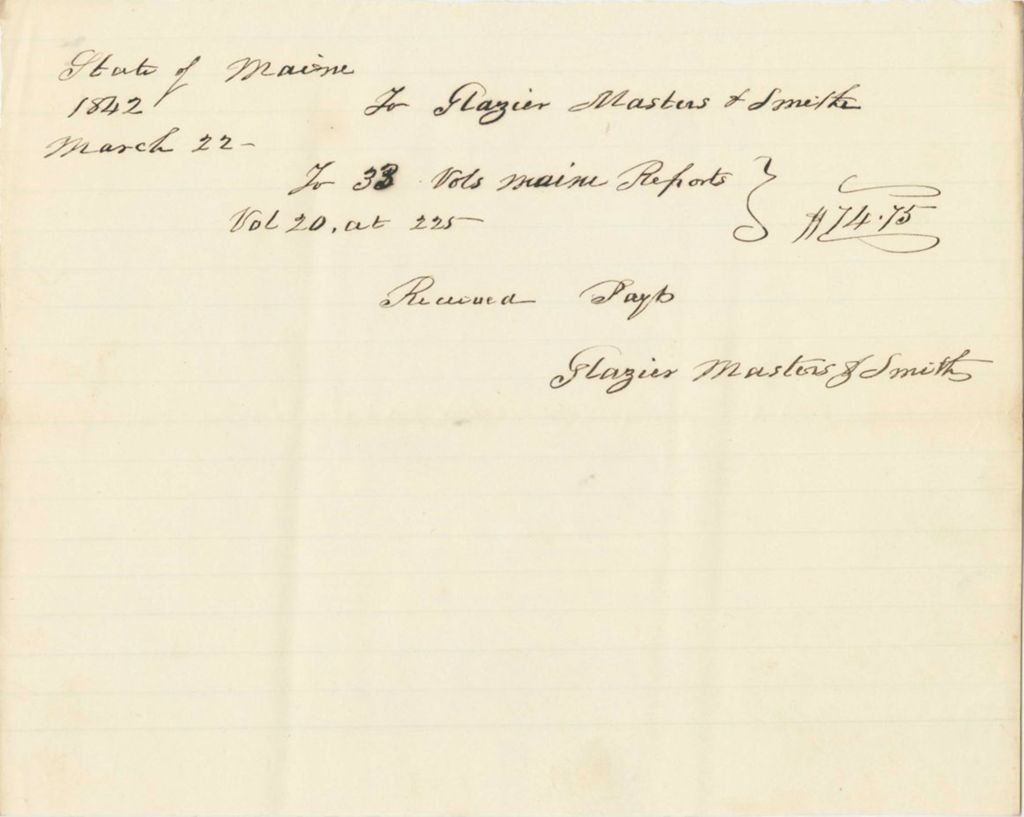 State of Maine
1842 To Glazier Masters & Smith
March 22 -
To 33 Vols Maine Reports
Vol 20, at 225 $74.75
Received Payt
Glazier Masters & Smith